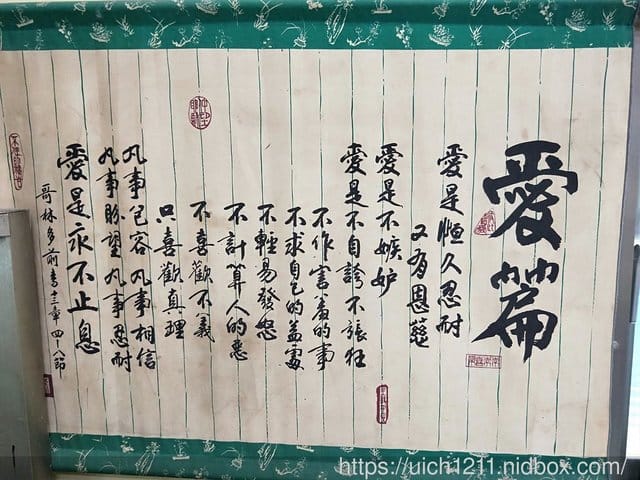 愛篇
愛是恒久忍耐
又有恩慈
愛是不嫉妒
愛是不自誇不張狂
不作害羞的事
不求自己的益處
不輕易發怒
不計算人的惡
不喜歡不義
只喜歡真理
凡事包容凡事相信
凡事盼望凡事忍耐
愛是永不止息
哥林多前書十三章四-八節
https://uich1211.nidbox.com/